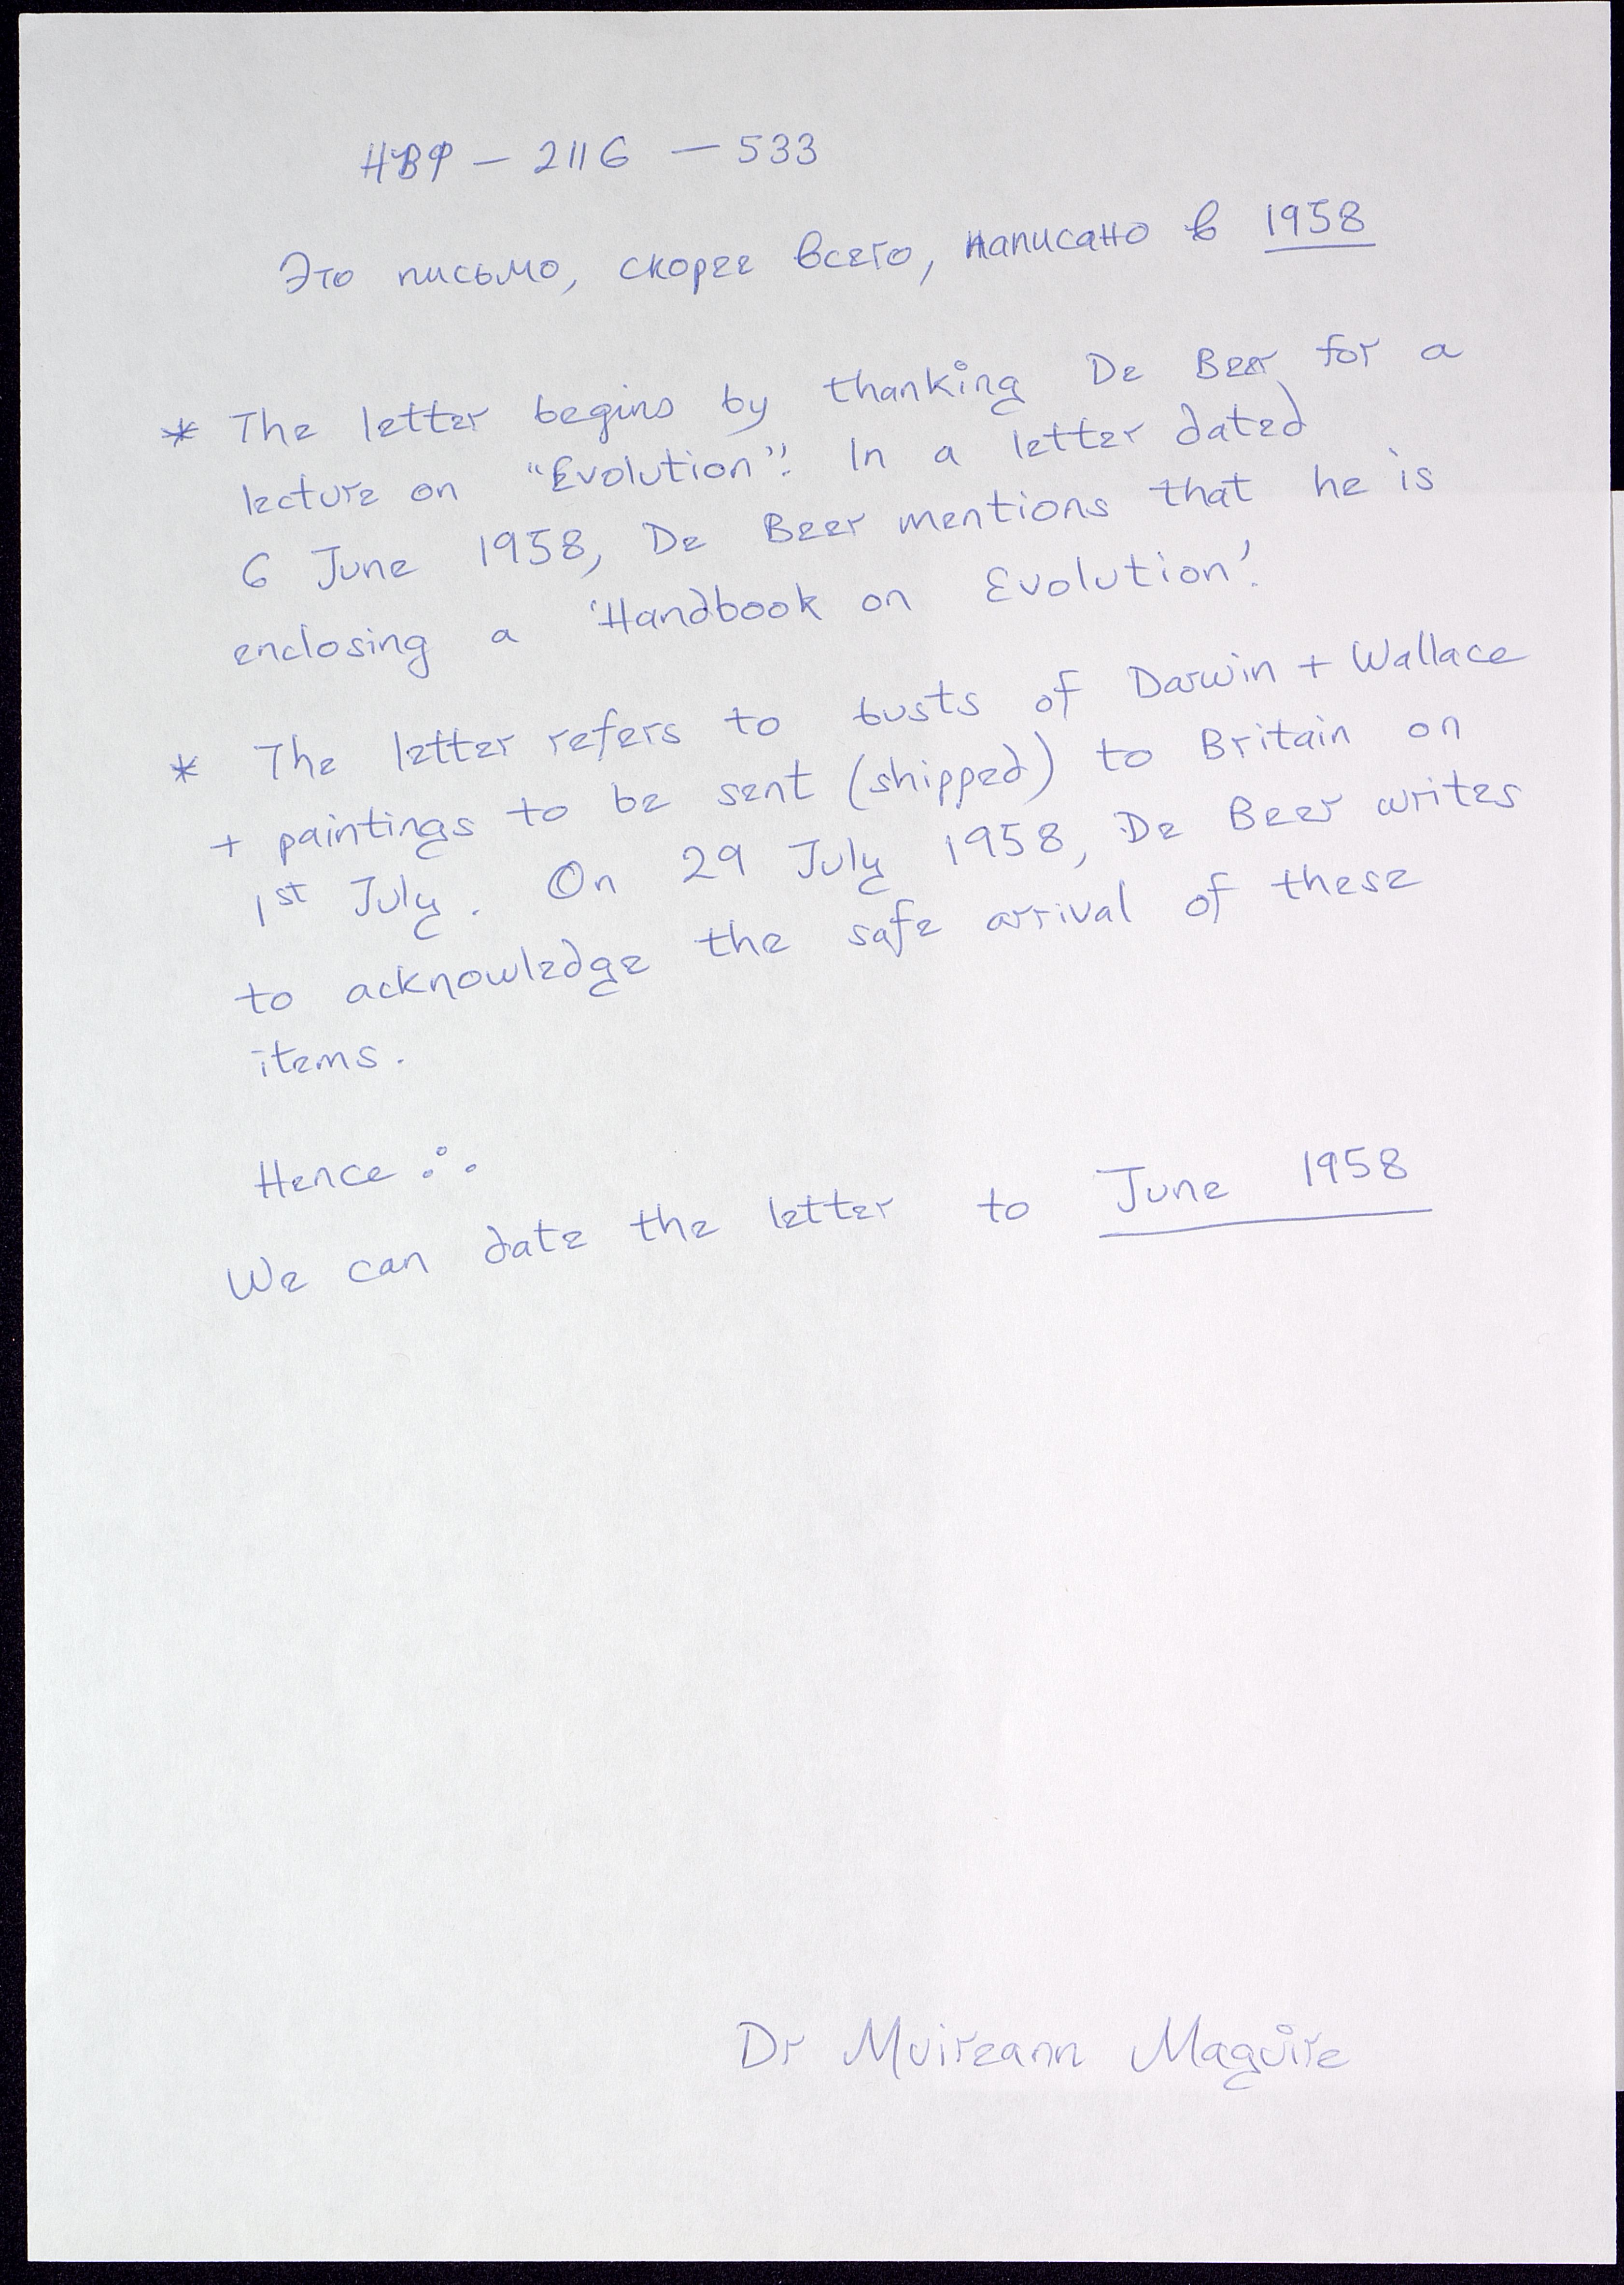 НВФ — 2116 — 533
Это письмо, скорее всего, написано в 1958
* The letter begins by thanking De Beer for a
lecture on "Evolution". In a letter dated
6 June 1958, De Beer mentions that he is
enclosing a 'Handbook on Evolution'.
* The letter refers to busts of Darwin + Wallace
+ paintings to be sent (shipped) to Britain on
1st July. On 29 July 1958, De Beer writes
to acknowledge the safe arrival of these
items.
Hence ∴
We can date the letter to June 1958
Dr Muireann Maguire